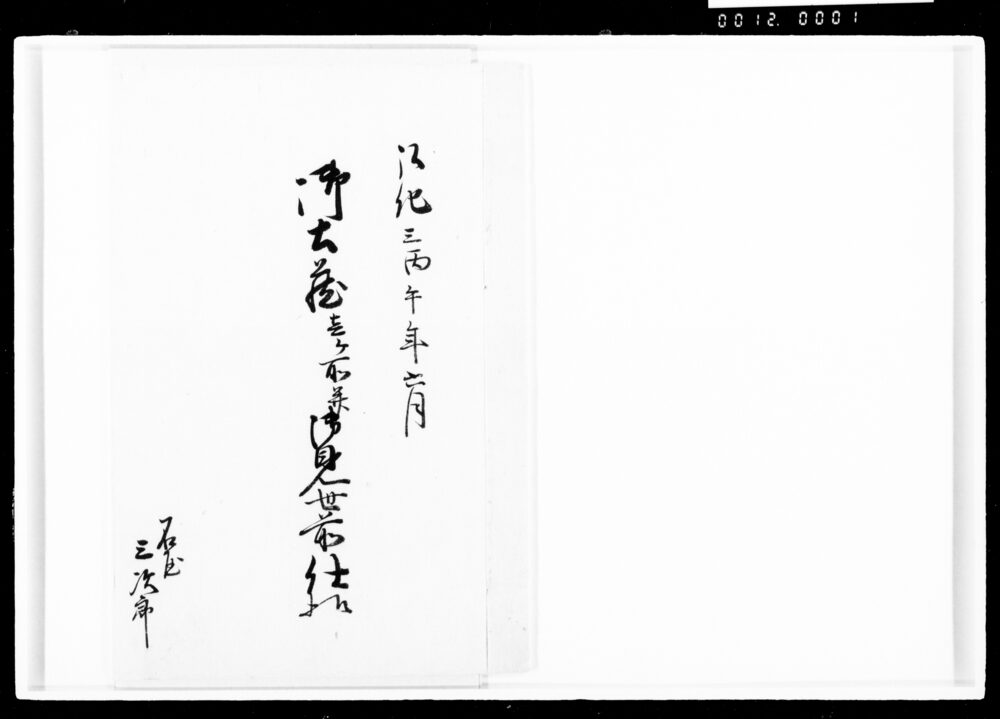 0012. 0001
弘化三丙午年六月
御土蔵壱ヶ所并御見世前仕
石屋
三次郎